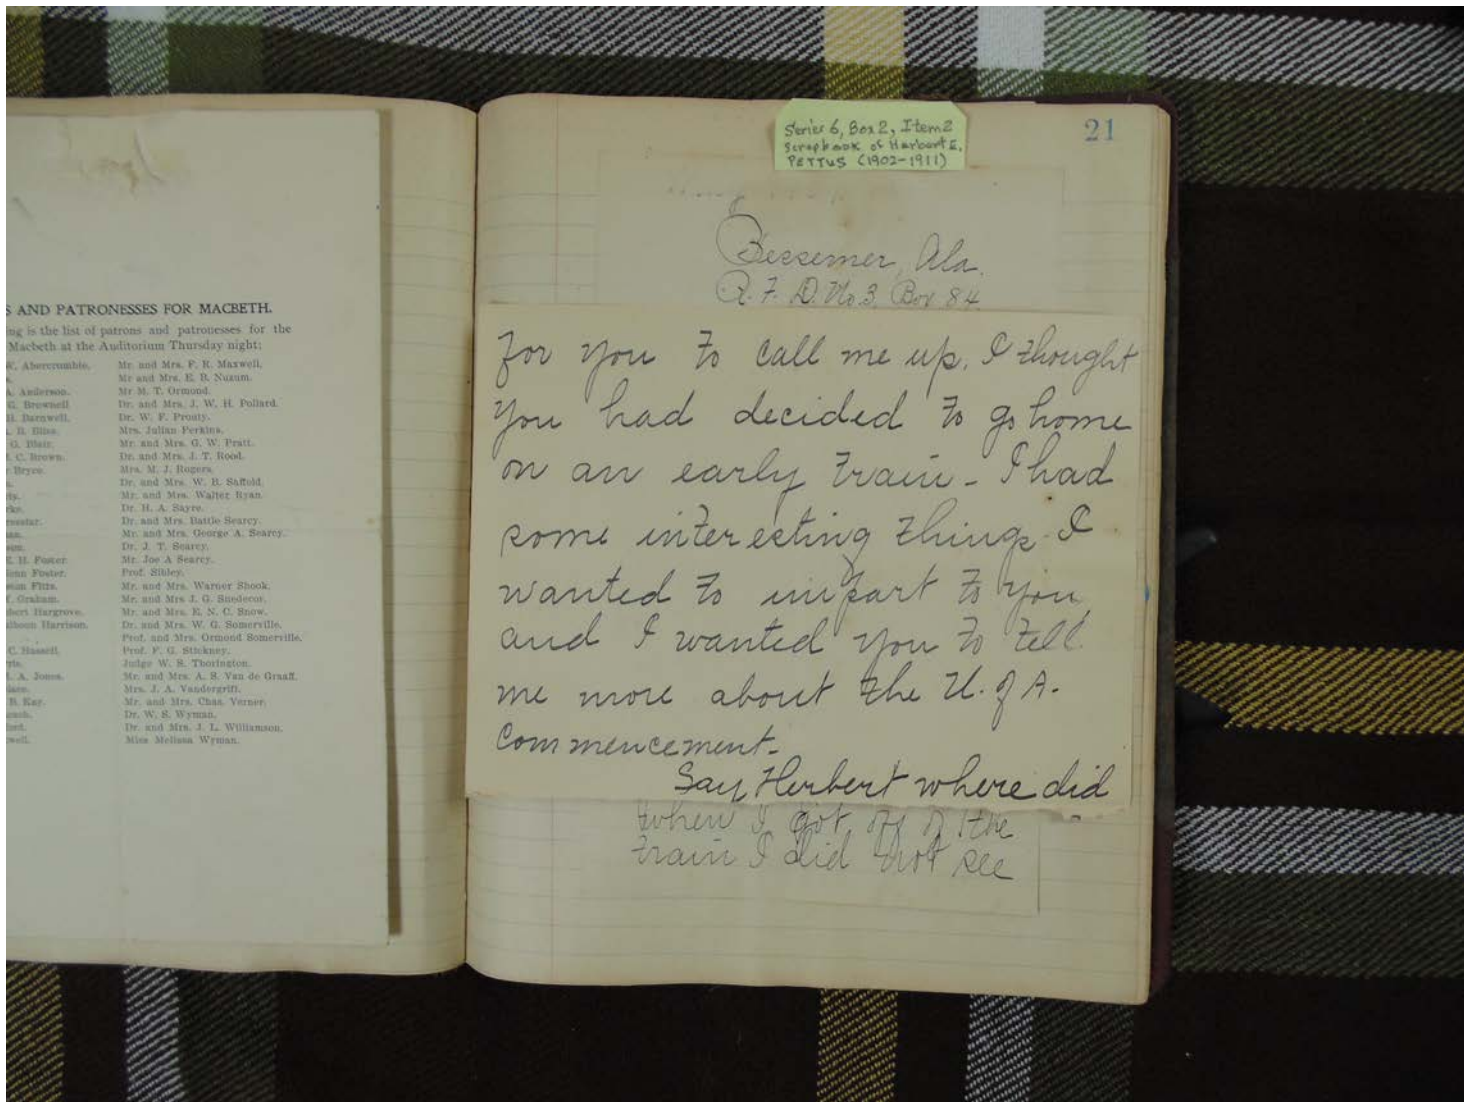 S AND PATRONESSES FOR MACBETH.
ing is the list of patrons and patronesses for the
Macbeth at the Auditorium Thursday night:
W. Abercrombie.
A. Anderson.
G. Brownell
H. Barnwell.
B. Bliss.
G. Blair.
C. Brown.
Bryce.
E. H. Foster
Glenn Foster.
Fitts.
Graham.
Hargrove.
Calhoun Harrison.
C. Hassell.
A. Jones.
B. Kay.
Mr. and Mrs. F. R. Maxwell.
Mr and Mrs. E. B. Nuzum.
Mr M. T. Ormond.
Dr. and Mrs. J. W. H. Pollard.
Dr. W. F. Prouty.
Mrs. Julian Perkins.
Mr. and Mrs. G. W. Pratt.
Dr. and Mrs. J. T. Rood.
Mrs. M. J. Rogers.
Dr. and Mrs. W. B. Saffold.
Mr. and Mrs. Walter Ryan.
Dr. H. A. Sayre.
Dr. and Mrs. Battle Searcy.
Mr. and Mrs. George A. Searcy.
Dr. J. T. Searcy.
Mr. Joe A Searcy.
Prof. Sibley.
Mr. and Mrs. Warner Shook.
Mr. and Mrs J. G. Snedecor.
Mr. and Mrs. E. N. C. Snow.
Dr. and Mrs. W. G. Somerville.
Prof. and Mrs. Ormond Somerville.
Prof. F. G. Stickney.
Judge W. S. Thorington.
Mr. and Mrs. A. S. Van de Graaff.
Mrs. J. A. Vandergrift.
Mr. and Mrs. Chas. Verner.
Dr. W. S. Wyman.
Dr. and Mrs. J. L. Williamson.
Miss Melissa Wyman.
Series 6, Box 2, Item 2
Scrapbook of Herbert E.
PETTUS (1902-1911)
21
Bessemer, Ala.
R. F. D. No. 3, Box 84
for you to call me up. I thought
you had decided to go home
on an early train - I had
some interesting things I
wanted to impart to you
and I wanted you to tell
me more about the U. of A.
Commencement-
Say, Herbert where did
when I got off of the
train I did not see